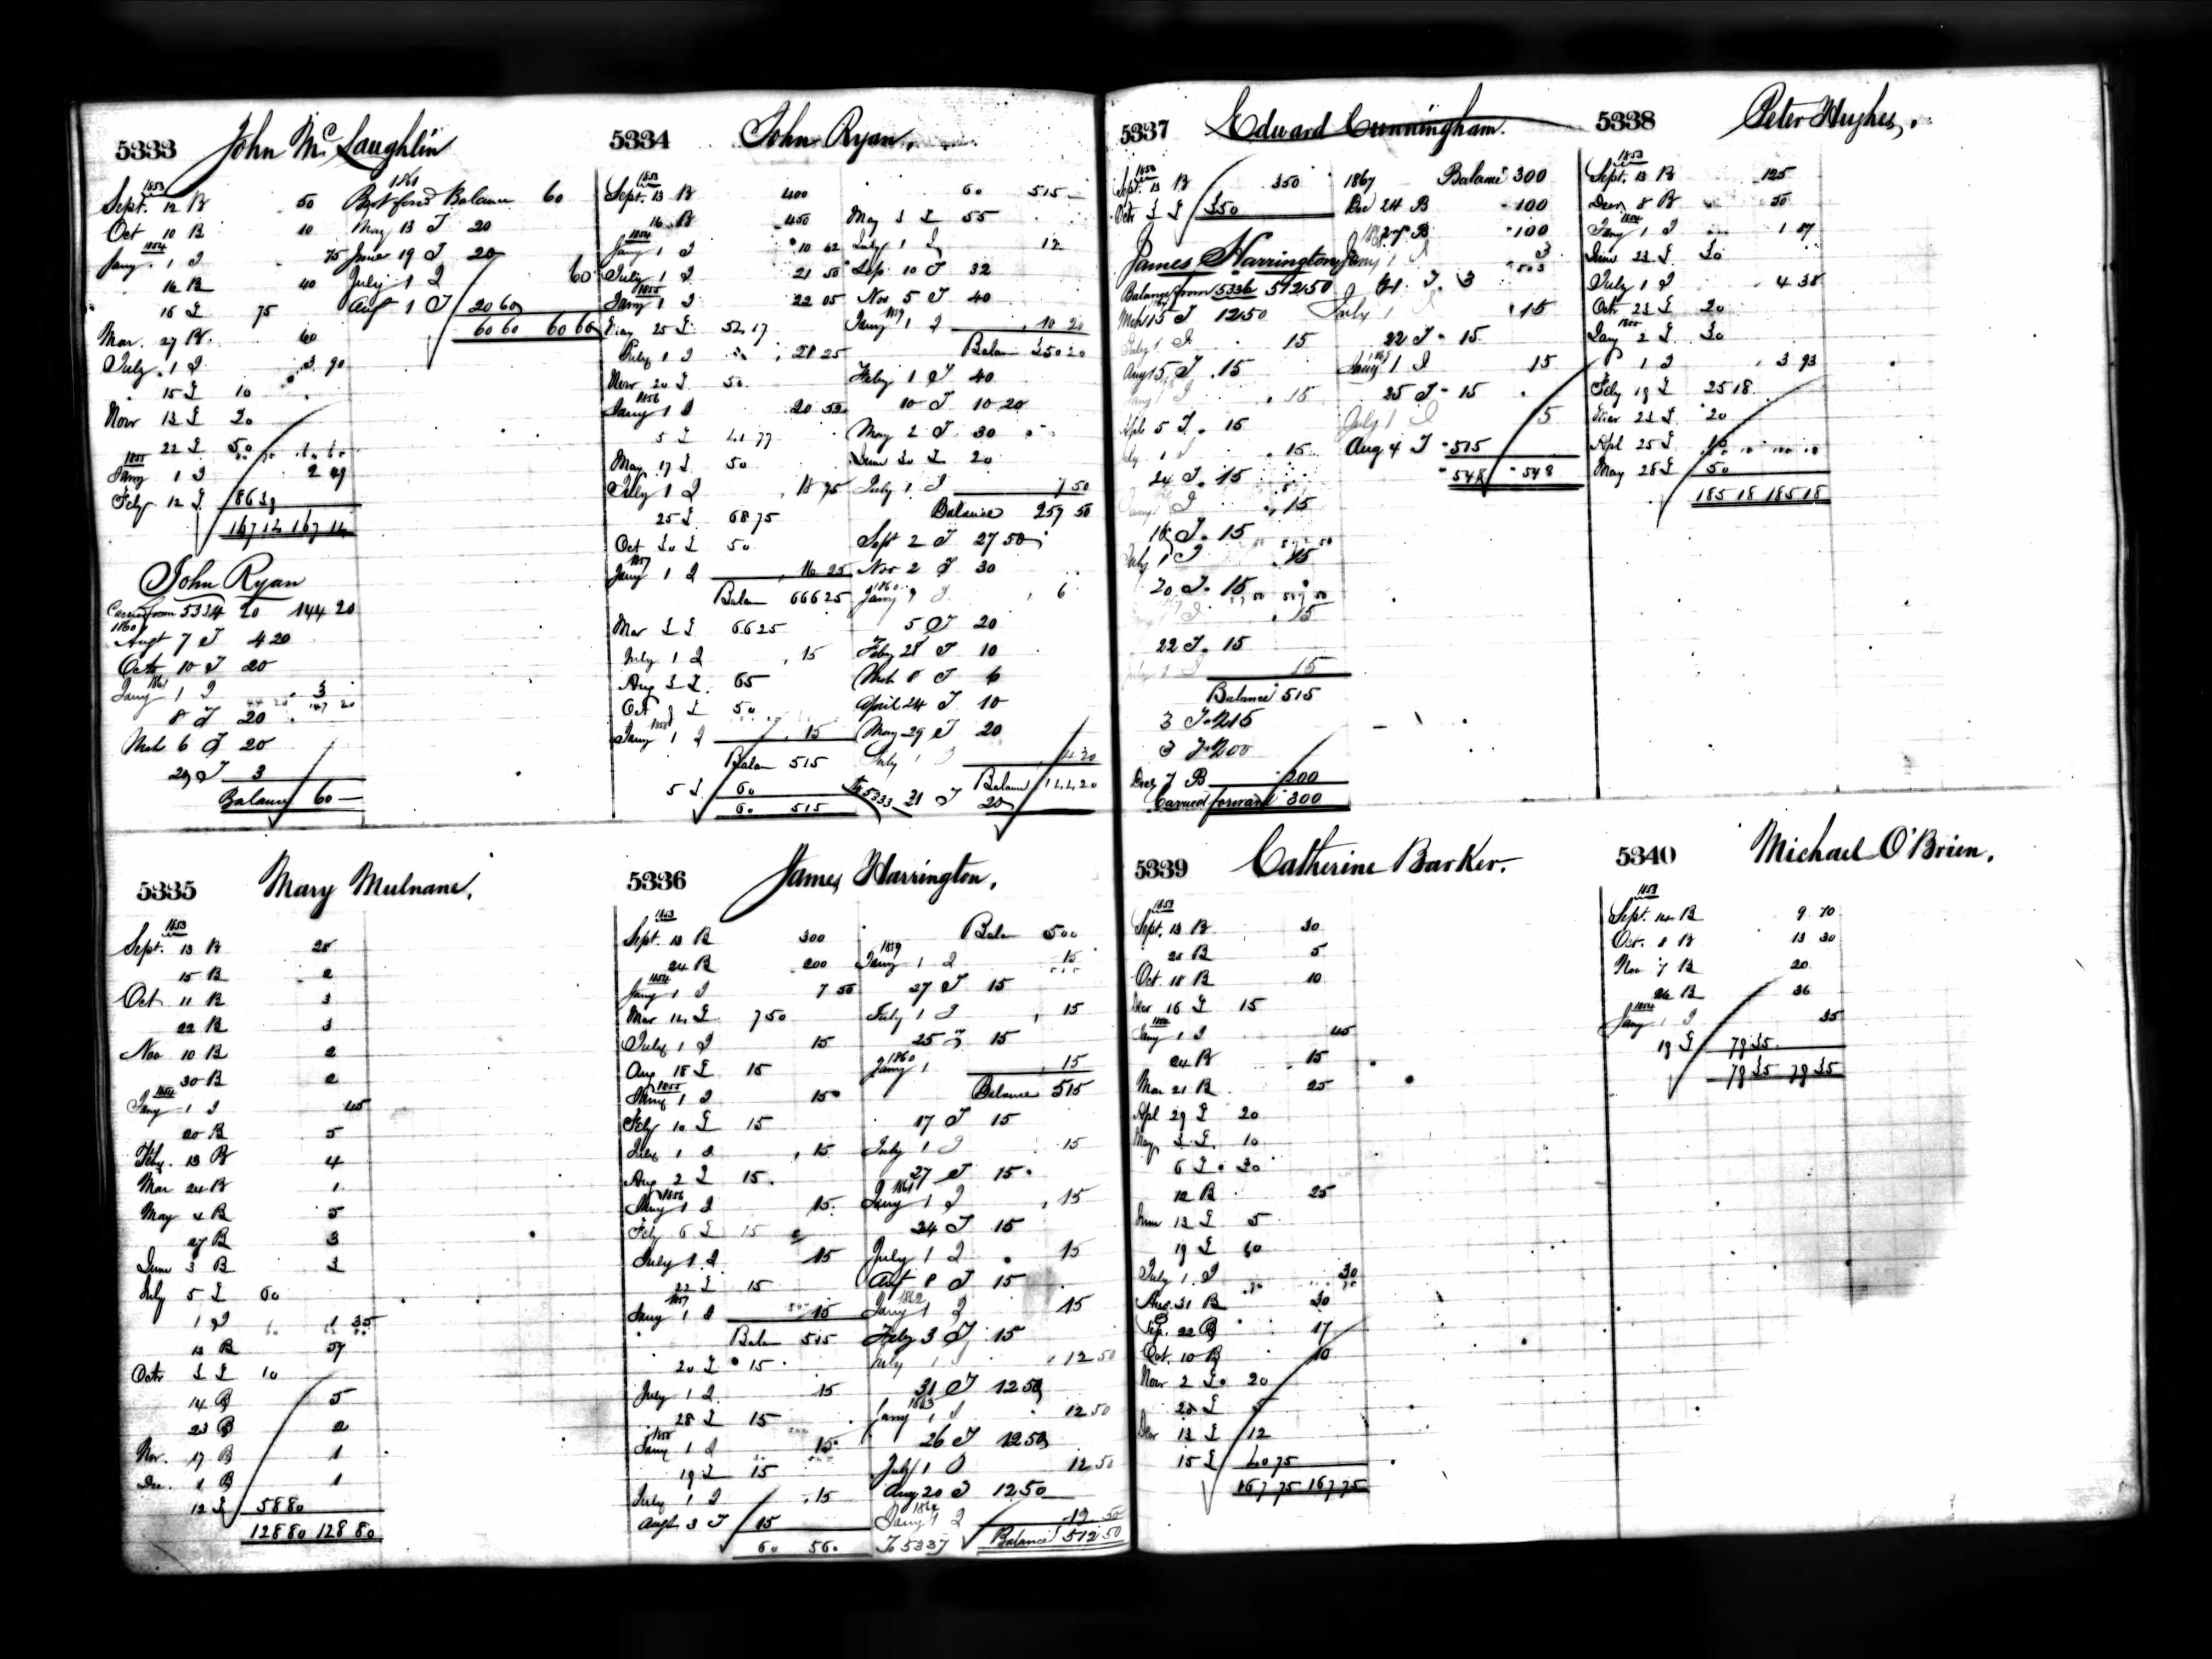 5333 John McLaughlin
1853
Sept. 12 B 50
Oct 10 B 10
1854
Jany. 1 I 75
14 B 40
16 L 75
Mar. 27 B. 60
July. 1 I 3 90
15 L 10
Novr 13 L 20
22 L 50
1855
Jany 1 I 2 49
Feby 12 L 86 39
167 14 167 14
1861
Bgt ford Balance 60
May 13 T 20
June 19 T 20
July 1 I 60
Augt 1 T 20 60
60 60 60 60
John Ryan
Carried from 5334 20 144 20
1860
Augt 7 T 4 20
Octr 10 T 20
1861
Jany 1 I 3
8 T 20
Mch 6 T 20
29 T 3
Balance 60 —
5334 John Ryan.
1853
Sept. 13 B 400
16 B 450
1854
Jany 1 I 10 62
July 1 I 21 50
1855
Jany 1 I 22 05
25 L 52 17
July 1 I 21 25
Novr 20 L 50
1856
Jany 1 I 20 52
5 L 41 77
May 17 L 50
July 1 I 18 75
25 L 68 75
Oct 30 L 50
1857
Jany 1 I 16 25
Balan 666 25
Mar 3 L 66 25
July 1 I 15
Aug 3 L 65
Oct 9 L 50
1858
Jany 1 I 15
Balan 515
5 L 60
60 515
60 515 —
May 3 L 55
July 1 I 12
Sep 10 T 32
Nov 5 T 40
1859
Jany 1 I 10 20
Balan 350 20
Feby 1 T 40
10 T 10 20
May 2 T 30
June 30 T 20
July 1 I 7 50
Balance 257 50
Sept 2 T 27 50
Nov 2 T 30
1860
Jany 1 I 6
5 T 20
Feby 28 T 10
Mch 8 T 6
April 24 T 10
May 29 T 20
July 1 I 4 20
Balance 144 20
To 5333 31 T 20
5335 Mary Mulnane.
1853
Sept. 13 B 25
15 B 2
Oct 11 B 3
22 B 3
Nov 10 B 2
30 B 2
1854
Jany 1 I 45
20 B 5
Feby. 13 B 4
Mar 24 B 1
May 4 B 5
27 B 3
June 3 B 3
July 5 L 60
1 I 1 35
13 B 59
Octr 3 L 10
14 B 5
23 B 2
Nov. 17 B 1
Dec. 1 B 1
12 L 58 80
128 80 128 80
5336 James Harrington.
1853
Sept. 13 B 300
24 B 200
1854
Jany 1 I 7 50
Mar 14 L 7 50
July 1 I 15
Aug 18 L 15
1855
Jany 1 I 15
Feby 10 L 15
July 1 I 15
Aug 2 L 15
1856
Jany 1 I 15
Feby 6 L 15
July 1 I 15
22 L 15
1857
Jany 1 I 15
Balan 515
20 L 15
July 1 I 15
28 L 15
1858
Jany 1 I 15
19 L 15
July 1 I 15
Augt 3 T 15
60 560
Balan 500
1859
Jany 1 I 15
27 T 15
July 1 I 15
25 T 15
1860
Jany 1 15
Balance 515
17 T 15
July 1 I 15
27 T 15
1861
Jany 1 I 15
24 T 15
July 1 I 15
Augt 8 T 15
1862
Jany 1 I 15
Feby 3 T 15
July 1 I 12 50
31 T 12 50
1863
Jany 1 I 12 50
26 T 12 50
July 1 I 12 50
Aug 20 T 12 50
1864
Jany 1 I 12 50
To 5337 Balance 512 50
5337 Edward Cunningham.
1853
Sept. 13 B 350
Octr 3 L 350
James Harrington
Balance from 5336 512 50
Mch 15 T 12 50
July 1 I 15
Aug 15 T 15
Jany 1 I 15
Apl 5 T 15
July 1 I 15
24 T 15
Jany I 15
16 T 15
July 1 I 15
20 T 15
I 15
22 T 15
July 1 I 15
Balance 515
3 T 215
3 T 200
Decr 7 B 200
Carried forward 300
1867 Balance 300
Dec 24 B 100
1868
27 B 100
Jany 1 I 3
503
21 T 3
July 1 I 15
22 T 15
1869
Jany 1 I 15
25 T 15
July 1 I 15
Aug 4 T 515
548 548
5338 Peter Hughes.
1853
Sept. 13 B 125
Decr 8 B 50
1854
Jany 1 I 1 87
June 23 L 30
July 1 I 4 38
Octr 23 L 20
1855
Jany 2 L 30
1 I 3 93
Feby 19 L 25 18
Mar 23 L 20
Apl 25 L 10
May 28 L 50
185 18 185 18
5339 Catherine Barker.
1853
Sept. 13 B 30
21 B 5
Oct. 18 B 10
Decr 16 L 15
1854
Jany 1 I 45
24 B 15
Mar 21 B 25
Apl 29 L 20
May 3 L 10
6 L 30
12 B 25
June 13 L 5
19 L 60
July 1 I 30
Aug. 31 B 30
Sep. 22 B 17
Oct. 10 B 10
Novr 2 L 20
25 L 5
Decr 13 L 12
15 L 40 75
167 75 167 75
5340 Michael O'Brien.
1853
Sept. 14 B 9 70
Oct. 8 B 13 30
Nov 7 B 20
26 B 36
1854
Jany 1 I 35
19 L 79 35
79 35 79 35